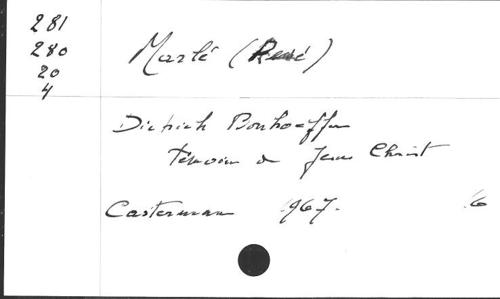 281
280
20
4
Marlé (René)
Dietrich Bonhoeffer
témoin de Jesus Christ
Casterman 1967. 16